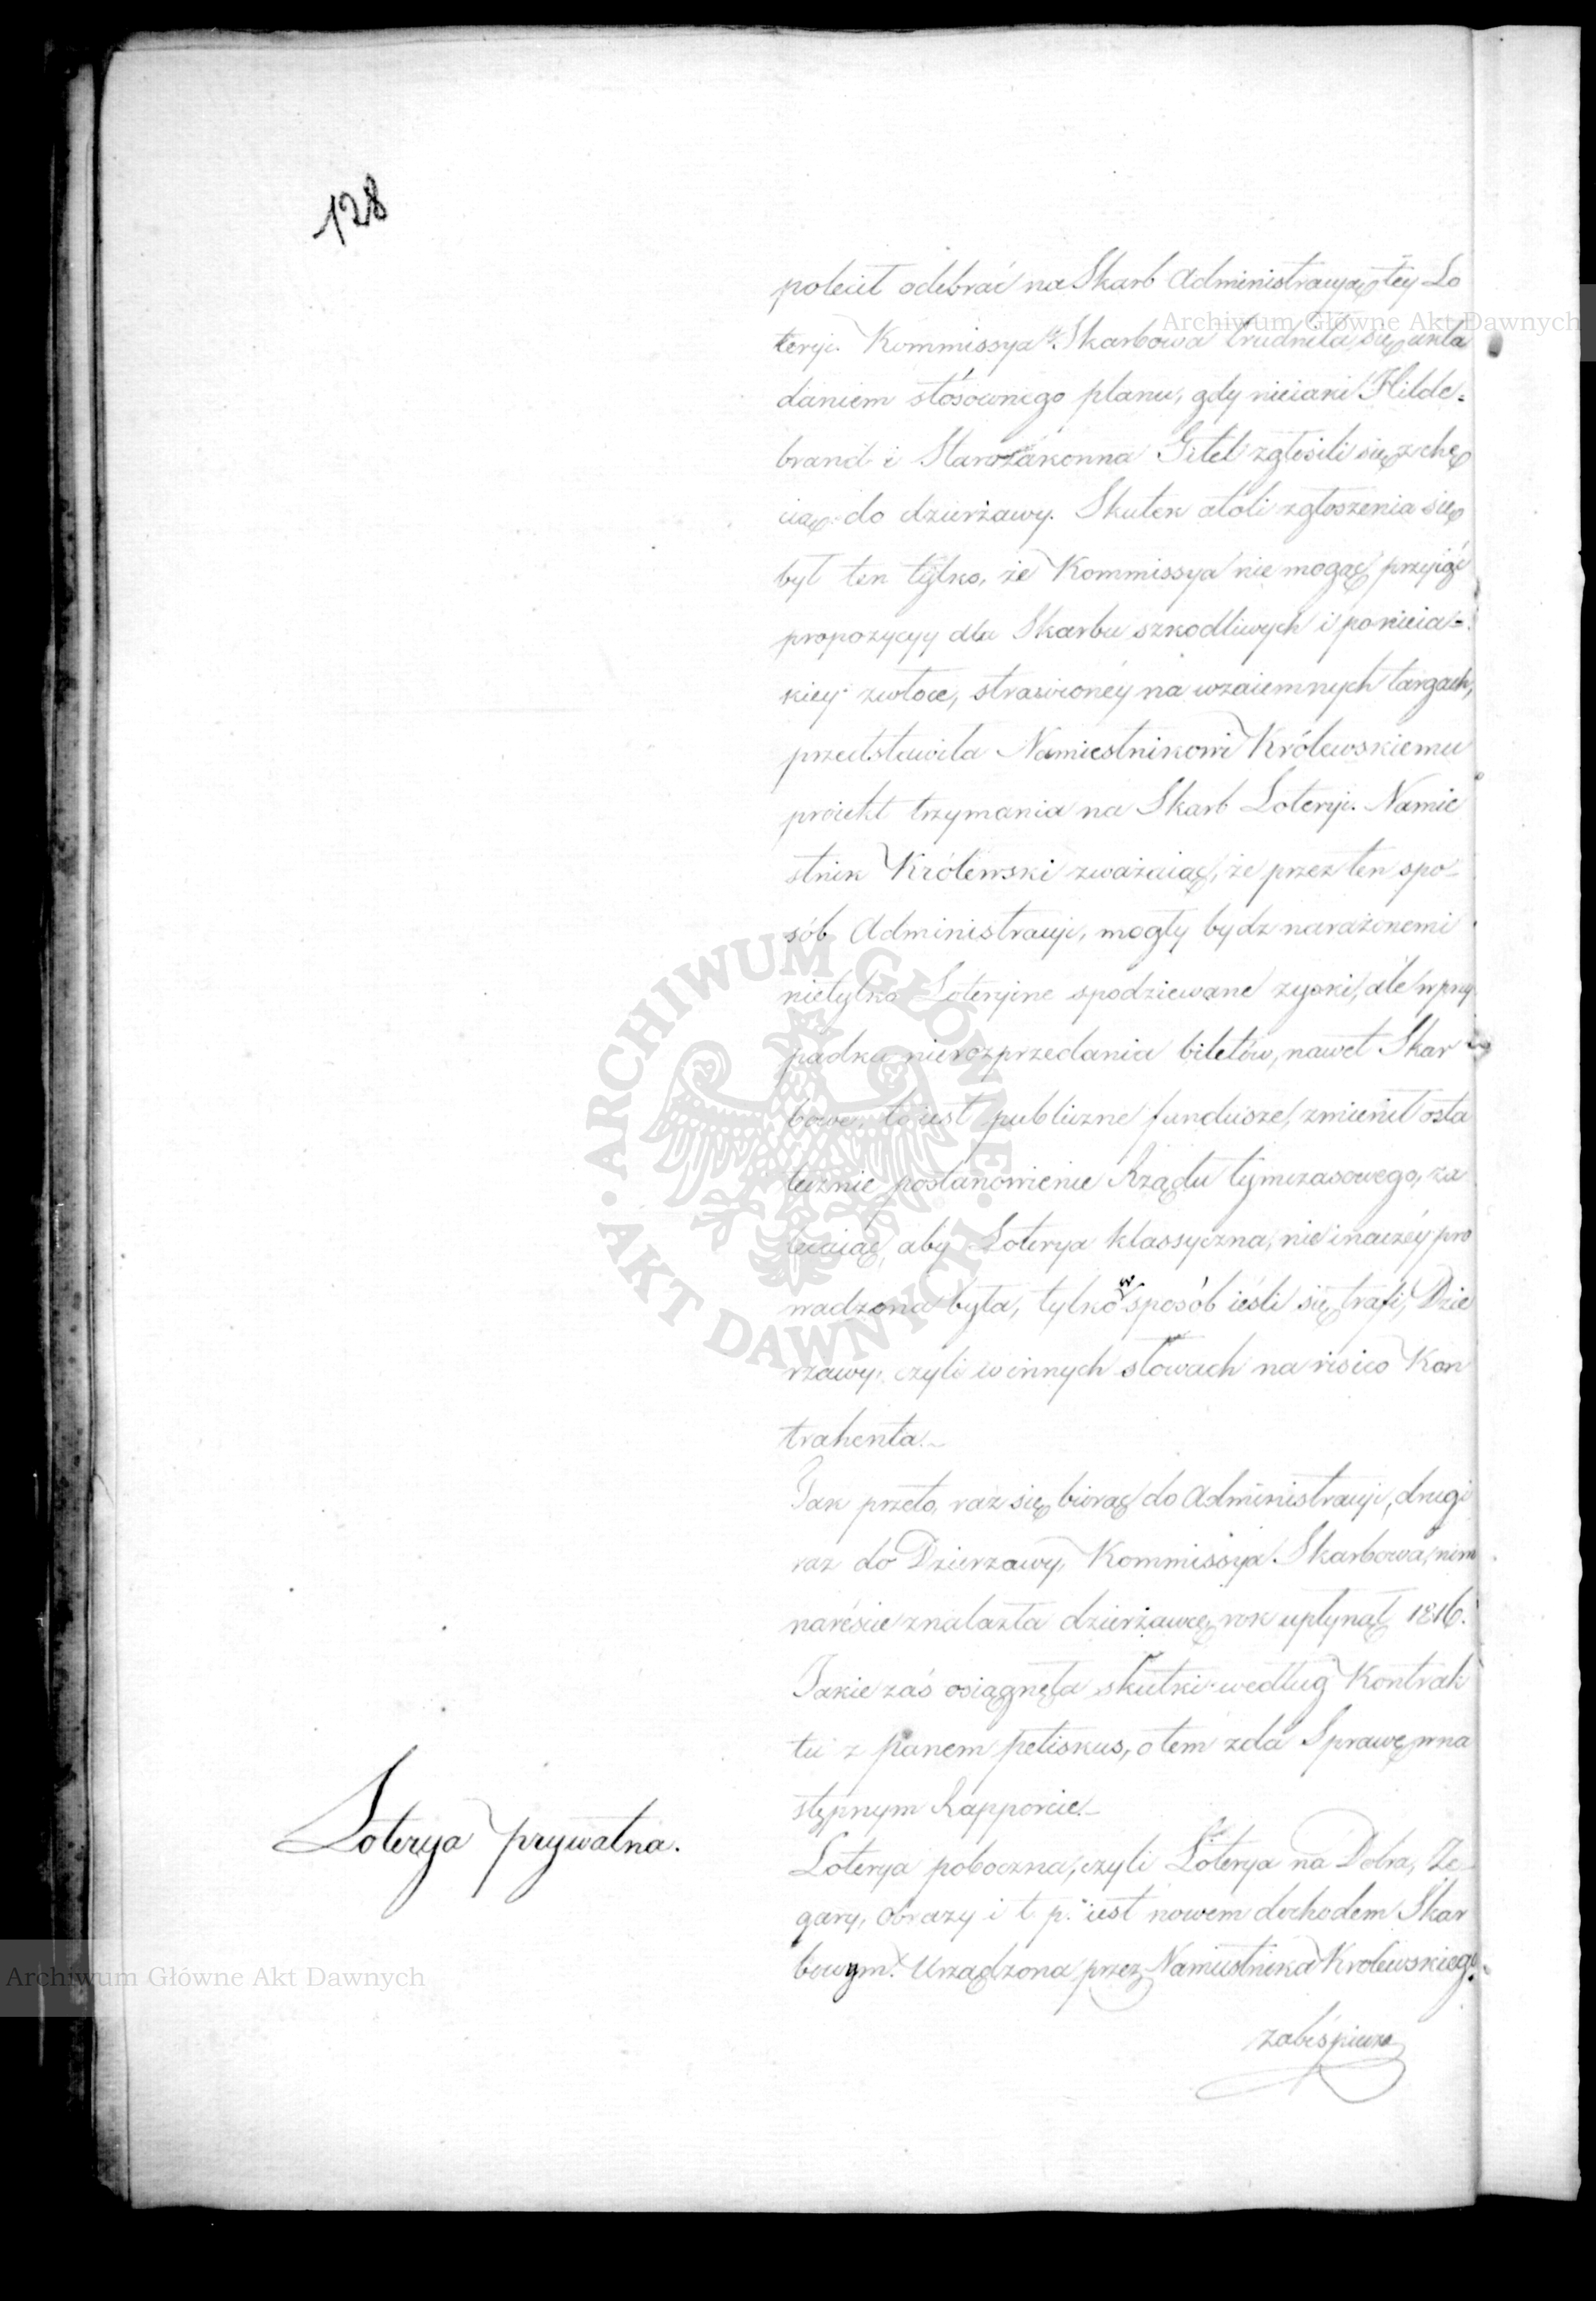 128
polecił odebrać na Skarb Administracyą tey Lo
teryi. Kommissya Skarbowa trudniła się ukła
daniem stósownego planu, gdy nieiaki Hilde=
brand i Starozakonna Gitel zgłosili się z chę
cią do dzierżawy. Skutek atoli zgłoszenia się
był ten tylko, że Kommissya nie mogąc przyiąć
propozycyy dla Skarbu szkodliwych i po nieia=
kiey zwłoce, strawionéy na wzaiemnych targach,
przedstawiła Namiestnikowi Królewskiemu
proiekt trzymania na Skarb Loteryi. Namie
stnik Królewski zważaiąc, że przez ten spo=
sób Administracyi, mogły bydz narażonemi
nietylko Loteryine spodziewane zyski, ale w przy
padku nierozprzedania biletów, nawet Skar
bowe, to iest publiczne fundusze, zmienił osta
tecznie postanowienie Rządu tymczasowego, za
lecaiąc, aby Loterya klassyczna, nie inaczéy pro
wadzona była, tylko w sposób ieśli się trafi, Dzie
rzawy, czyli w innych słowach na risico Kon
trahenta.
Tak przeto, raz się biorąc do Administracyi, drugi
raz do Dzierzawy, Kommissya Skarbowa, nim
nareście znalazła dzierżawcę, rok upłynął 1816.
Jakie zaś osiągnęła skutki według Kontrak
tu z panem Petiskus, o tem zda Sprawę w na
stępnym Rapporcie.
Loterya prywatna.
Loterya poboczna, czyli Loterya na Dobra, Ze
gary, Obrazy i t. p. iest nowem dochodem Skar
bowym. Urządzona przez Namiestnika Krolewskiego.
zabespiecza
Archiwum Główne Akt Dawnych
Archiwum Główne Akt Dawnych
ARCHIWUM GŁÓWNE AKT DAWNYCH